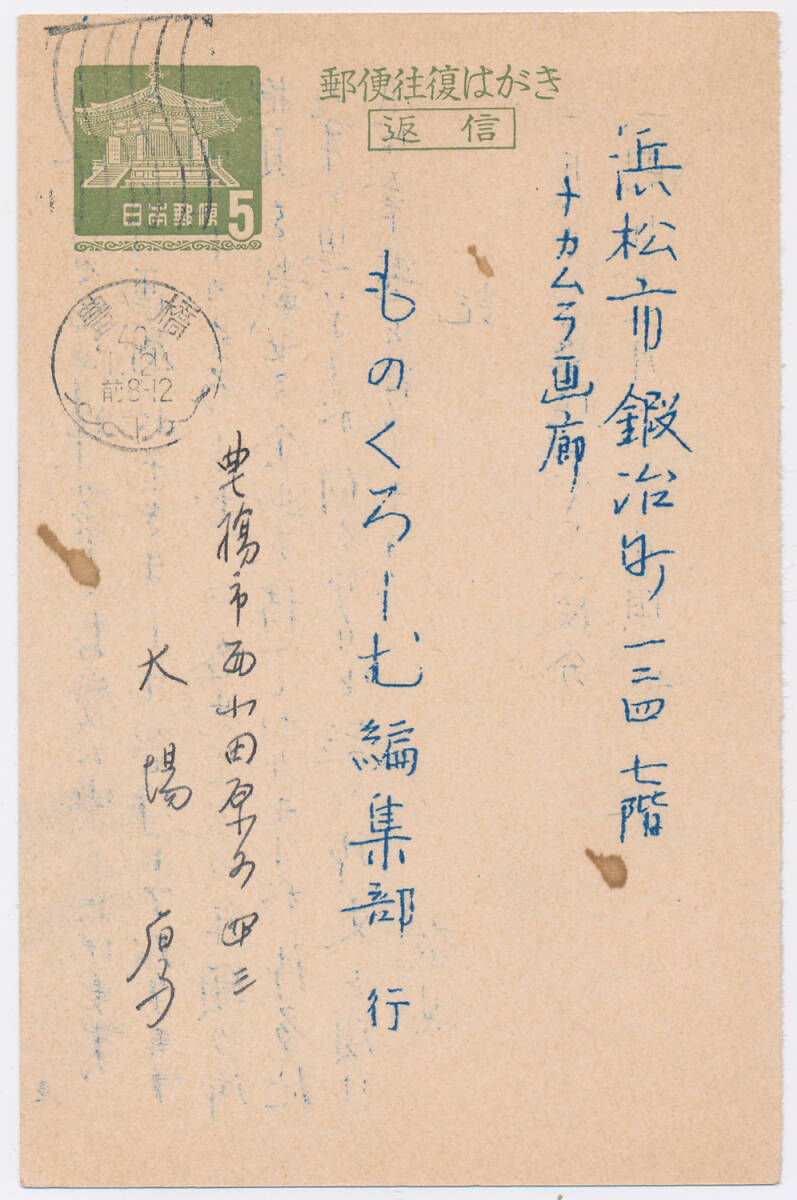 郵便往復はがき
返信
日本郵便 5
豊橋
前8-12
浜松市鍛冶町一三四 七階
ナカムラ画廊
ものくろーむ編集部 行
豊橋市西小田原町四三
大場